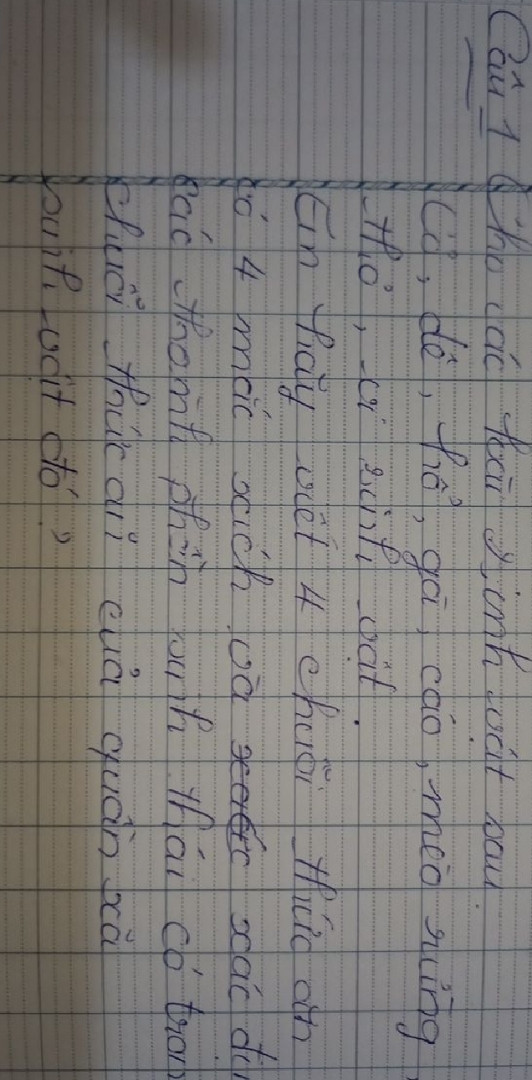 Câu 1 Cho các loài sinh vật sau.
Cỏ, dê, hổ, gà, cáo, mèo rừng,
thỏ, vi sinh vật.
Em hãy viết 4 chuỗi thức ăn
có 4 mắc xích và xác
các thành phần sinh thái có
chuỗi thức ăn của quần xã
sinh vật đó?